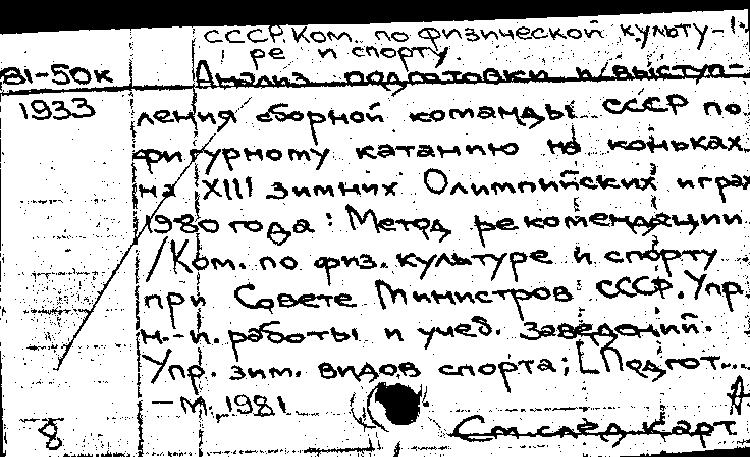 СССР. Ком. по физической культу-
ре и спорту.
81-50к Анализ подготовки и выступ-
1933 ления сборной команды СССР по
фигурному катанию на коньках
на XIII зимних Олимпийских играх
1980 года: Метод рекомендации
/Ком. по физ. культуре и спорту
при Совете Министров СССР. Упр.
н.-и. работы и учеб. заведений.
Упр. зим. видов спорта; [Подгот...
- М., 1981
8 См. след. карт